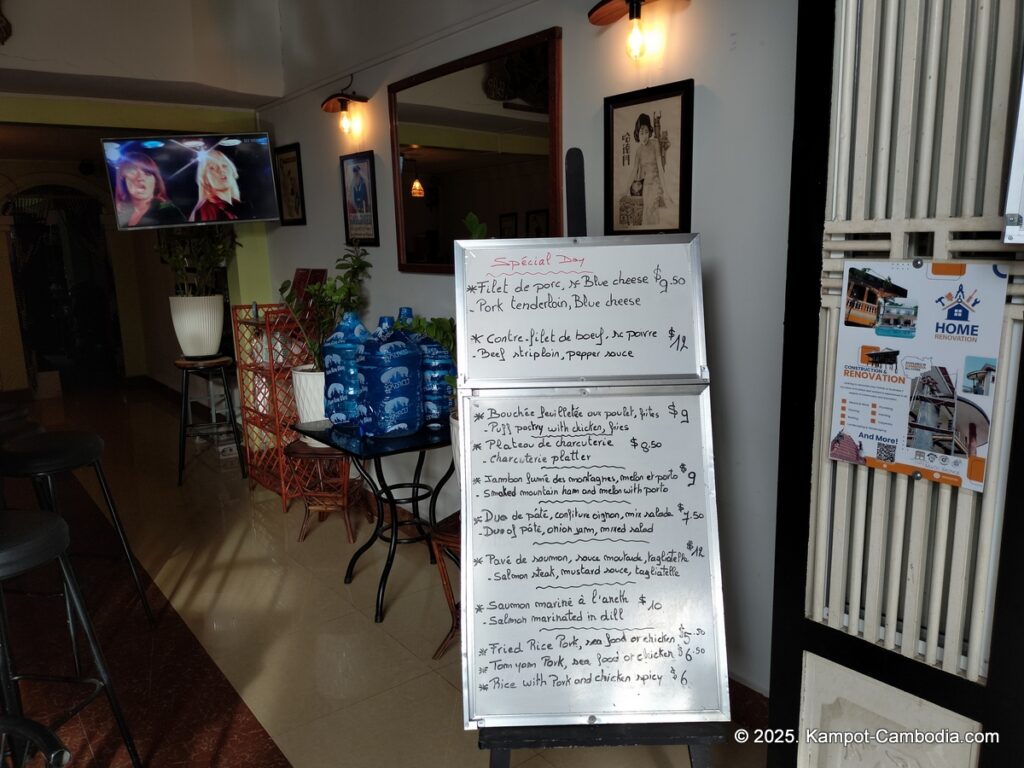 Spécial Day
*Filet de porc, sc Blue cheese $9.50
- Pork tenderloin, Blue cheese
* Contre-filet de boeuf, sc poivre $12
- Beef striploin, pepper sauce
* Bouchée feuilletée aux poulet, frites $9
- Puff pastry with chicken, fries
* Plateau de charcuterie $8.50
- Charcuterie platter
* Jambon fumé des montagnes, melon et porto $9
- Smoked mountain ham and melon with porto
* Duo de pâté, confiture oignon, mix salade $7.50
- Duo of pâté, onion jam, mixed salad
* Pavé de saumon, sauce moutarde, tagliatelle $12
- Salmon steak, mustard sauce, tagliatelle
* Saumon mariné à l'aneth $10
- Salmon marinated in dill
* Fried Rice Pork, sea food or chicken $5.50
* Tom yam Pork, sea food or chicken $6.50
* Rice with Pork and chicken spicy $6
HOME
RENOVATION
CONSTRUCTION &
RENOVATION
And More!
© 2025. Kampot-Cambodia.com